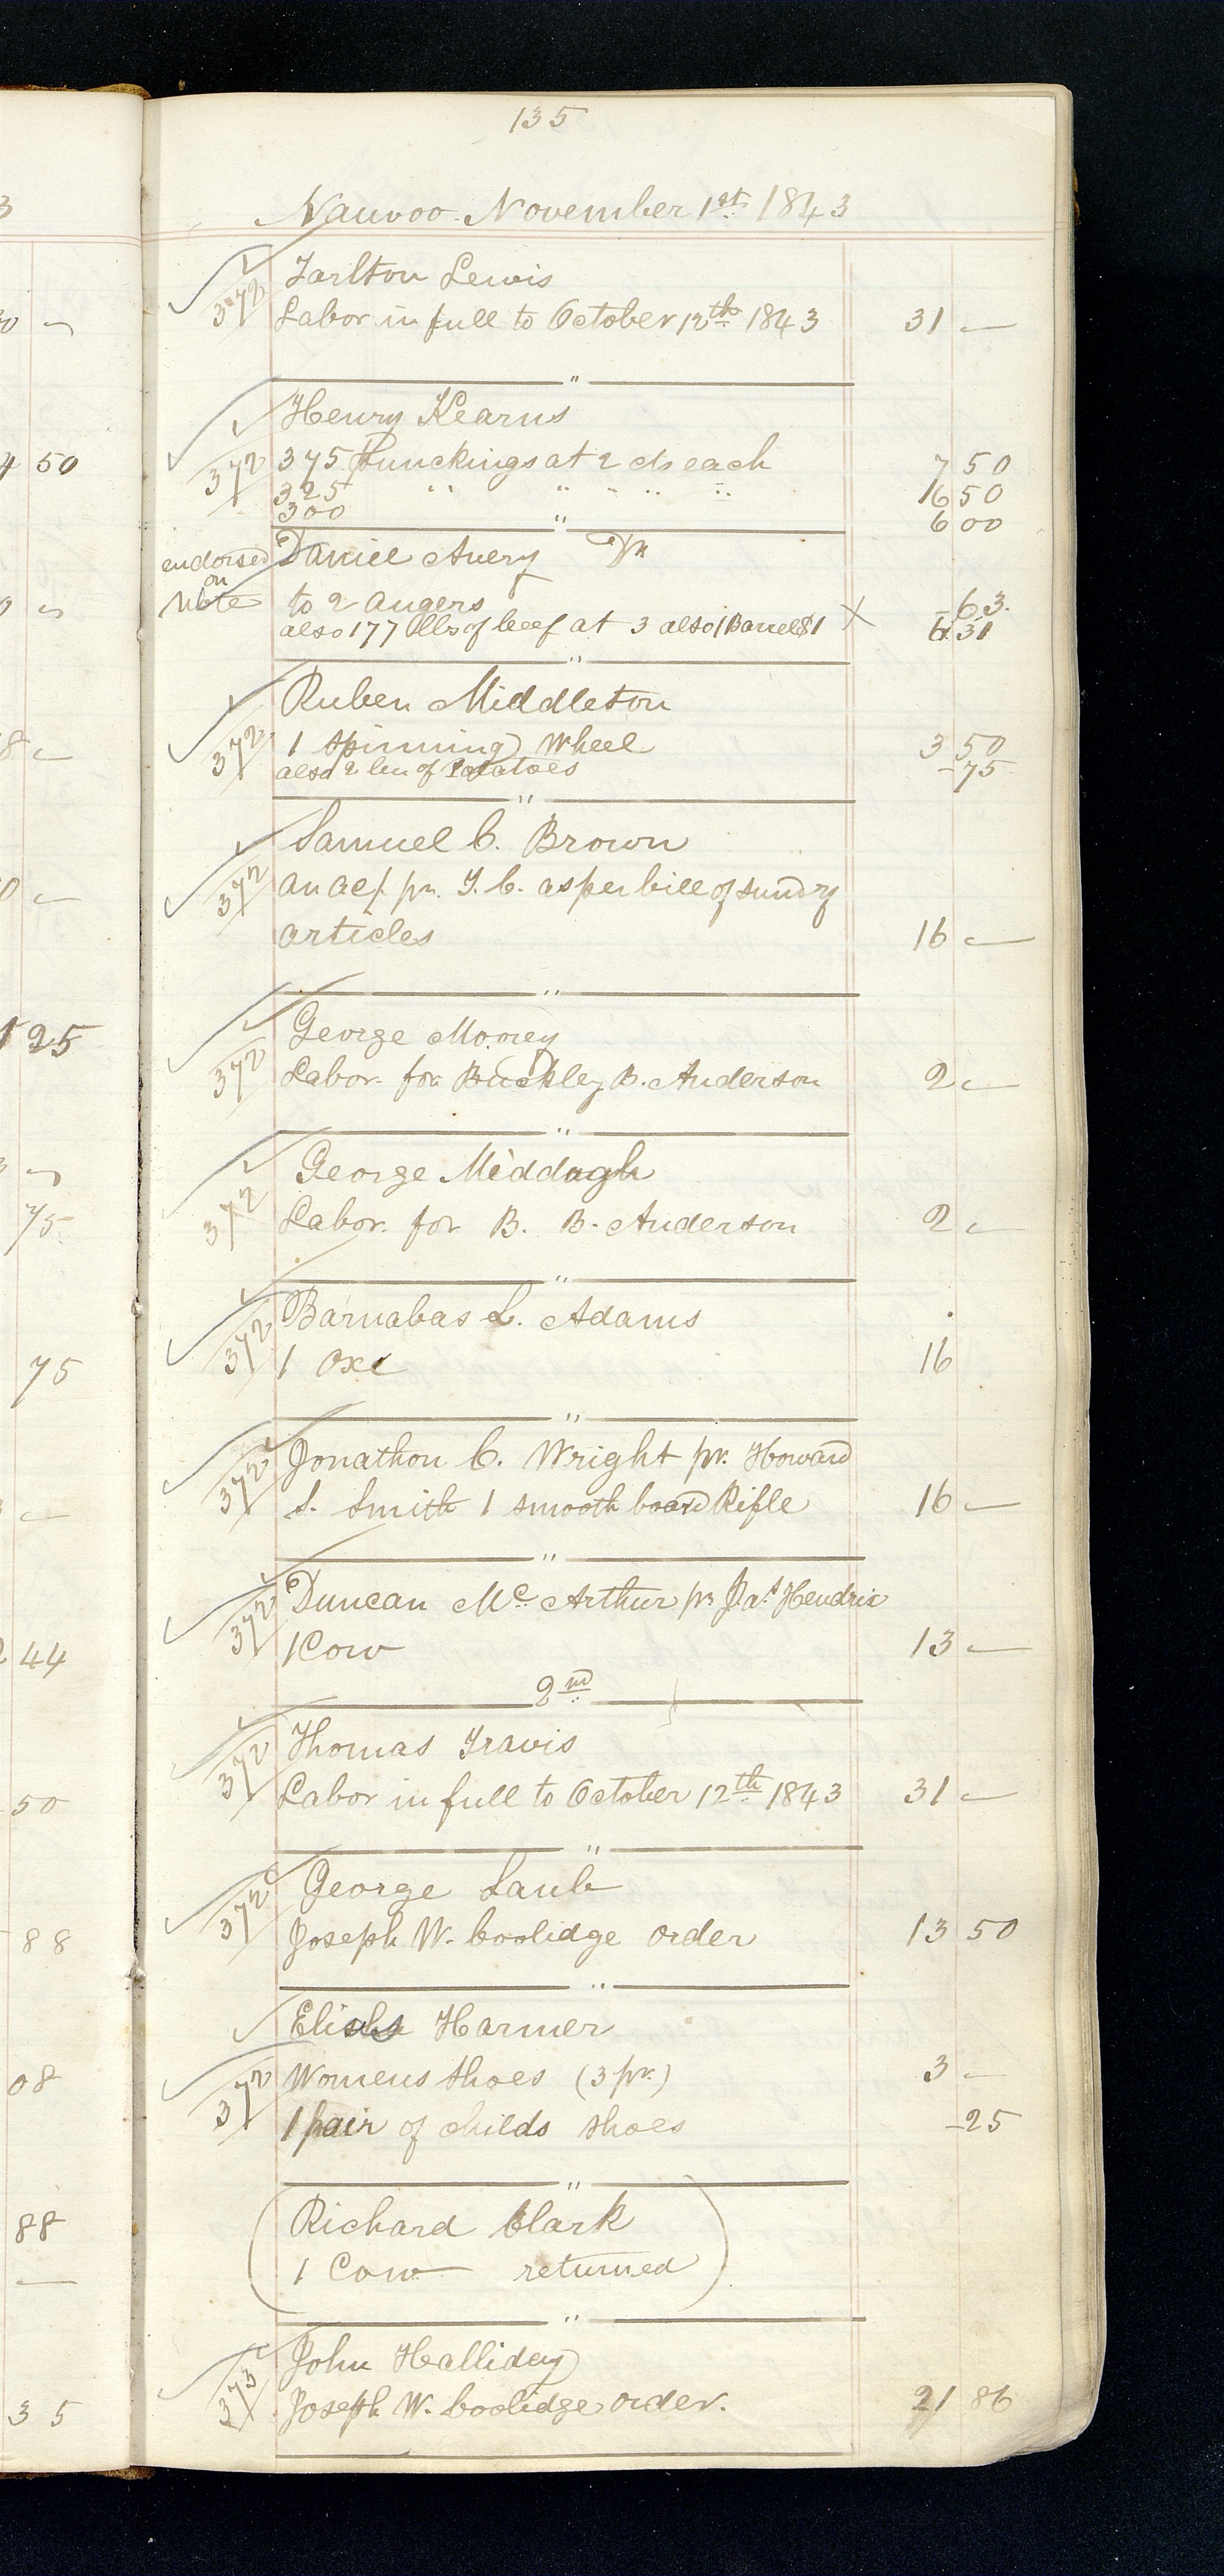 135
3
Nauvoo. November 1st. 1843
✓ Tarlton Lewis
372 Labor in full to October 12th. 1843 31 —
"
✓ Henry Kearns
4 50
372 375 Punckings at 2 cts each 7 50
325 " " " " " 16 50
300 6 00
"
endorsed on Note
Daniel Avery Dr
to 2 augers - 63.
also 177 lbs of beef at 3 also 1 Barrel $1 X 6 31
"
✓ Ruben Middleton
372 1 Spinning Wheel 3 50
also 2 bu of Potatoes - 75
"
✓ Samuel C. Brown
372 an acf. pr. T. C. as per bill of sundry
articles 16 —
"
1 25
✓ George Morey
372 Labor. for Buckley B. Anderson 2 —
"
✓ George Middugh
75
372 Labor. for B. B. Anderson 2 —
"
✓ Barnabas L. Adams
75
372 1 Oxe 16
"
✓ Jonathon C. Wright pr. Howard
372 S. Smith 1 smooth board Rifle 16 —
"
✓ Duncan Mc. Arthur pr Jas. Hendrix
2 44
372 1 Cow 13 —
2nd
✓ Thomas Travis
50
372 Labor in full to October 12th 1843 31 —
"
✓ George Laub
88
372 Joseph W. Coolidge order 13 50
"
✓ Elisha Harmer
08
372 Womens shoes (3 pr.) 3 —
1 pair of childs shoes - 25
"
88
(Richard Clark
1 Cow — returned)
"
✓ John Halliday
35
373 Joseph W. Coolidge order. 21 86